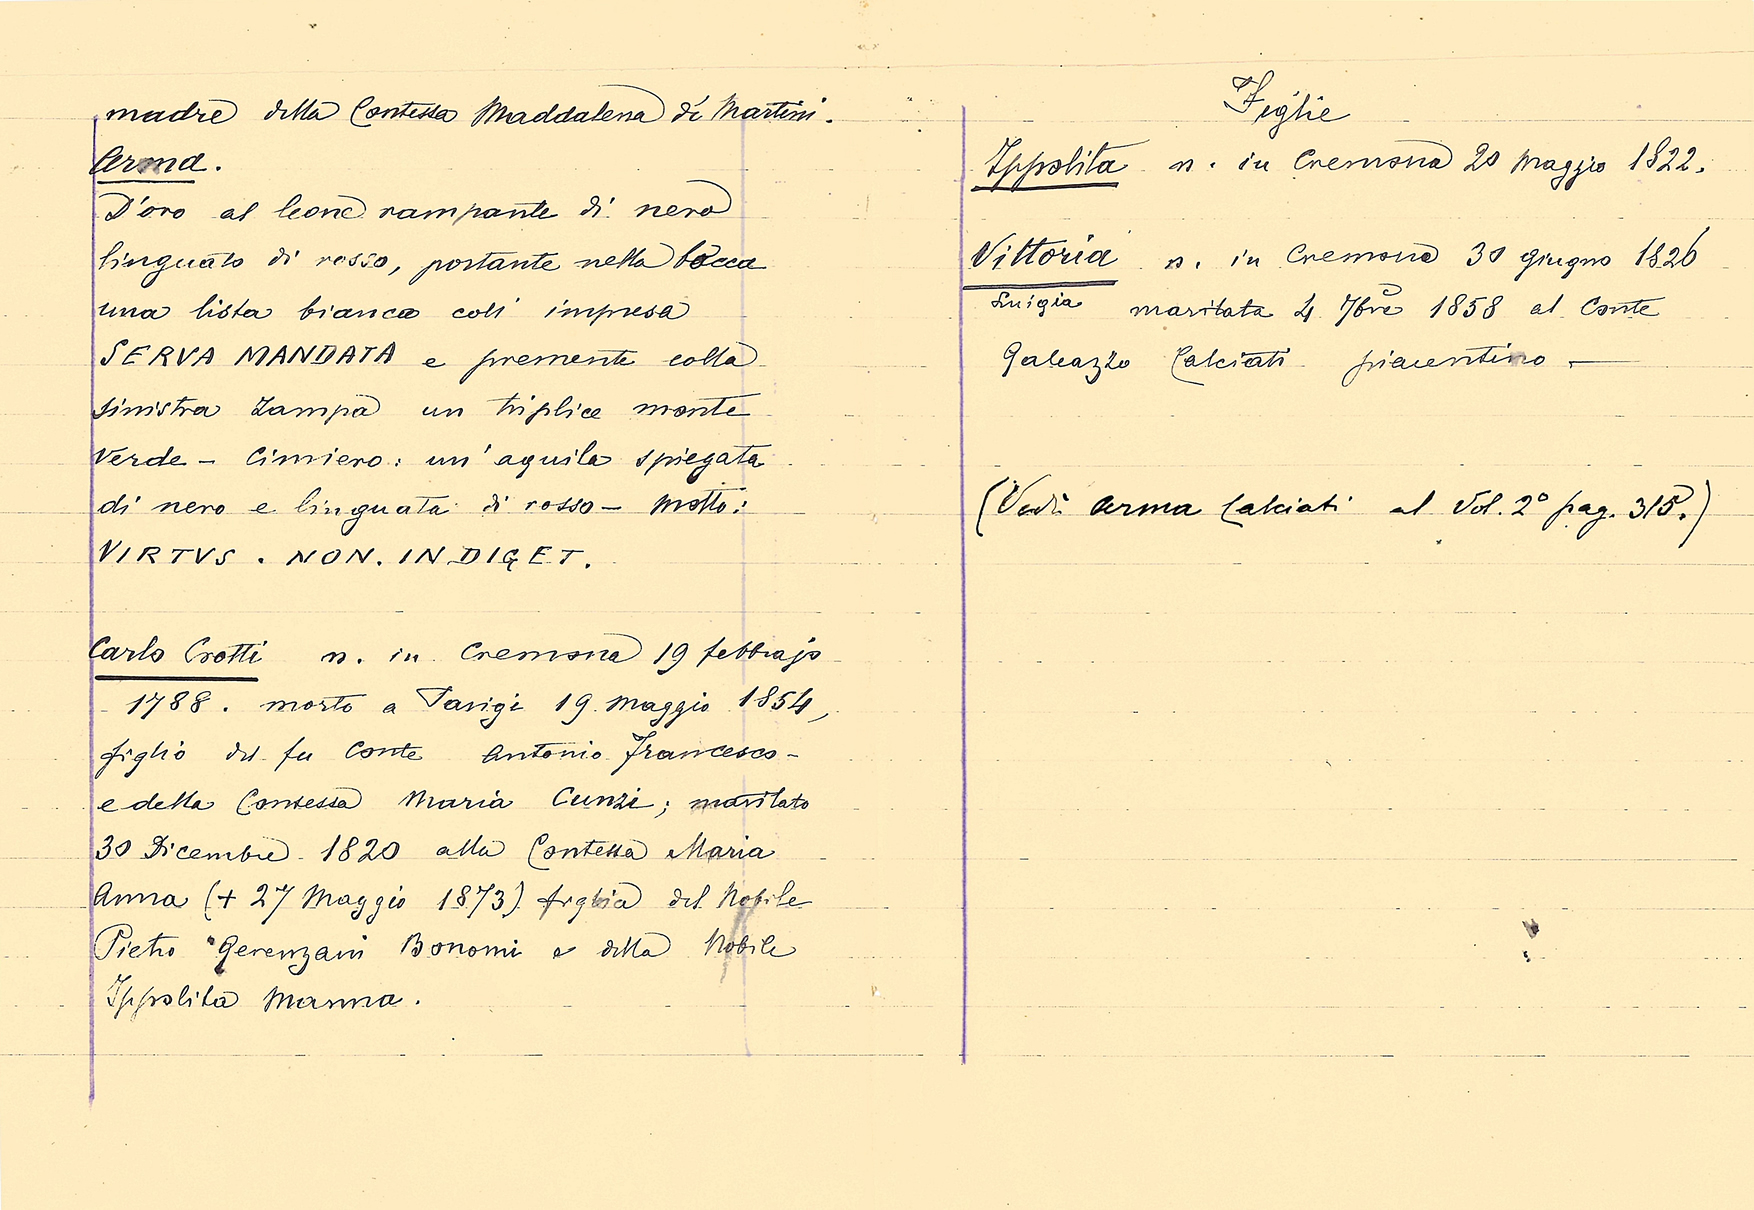 madre della Contessa Maddalena di Martini.
Arma.
D'oro al leone rampante di nero
linguato di rosso, portante nella bocca
una lista bianca coll' impresa
SERVA MANDATA e premente colla
sinistra zampa un triplice monte
verde - Cimiero: un' aquila spiegata
di nero e linguata di rosso - Motto:
VIRTVS. NON. INDIGET.
Carlo Crotti n. in Cremona 19 febbrajo
1788. morto a Parigi 19 Maggio 1854,
figlio del fu Conte Antonio Francesco -
e della Contessa Maria Cunzi; maritato
30 Dicembre 1820 alla Contessa Maria
Anna (+ 27 Maggio 1873) figlia del Nobile
Pietro Gerenzani Bonomi e della Nobile
Ippolita Manna.
Figlie
Ippolita n. in Cremona 20 Maggio 1822.
Vittoria n. in Cremona 30 giugno 1826
Luigia maritata 4 7bre 1858 al Conte
Galeazzo Calciati piacentino -
(Vedi arma Calciati al Vol. 2º pag. 315.)